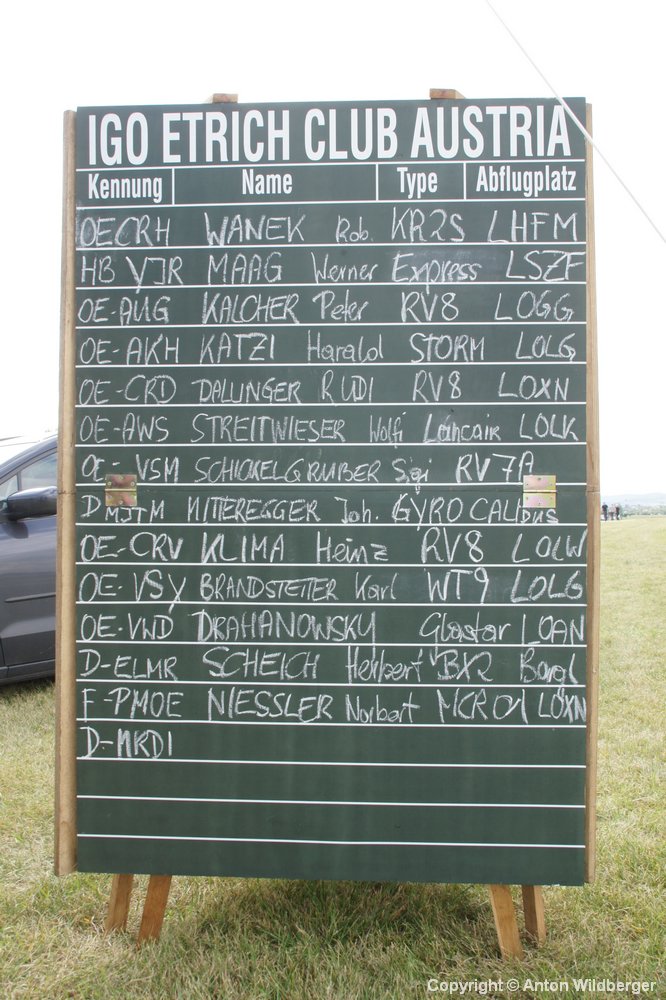 IGO ETRICH CLUB AUSTRIA
Kennung Name Type Abflugplatz
OECRH WANEK Rob. KR2S LHFM
HB YJR MAAG Werner Express LSZF
OE-AUG KALCHER Peter RV8 LOGG
OE-AKH KATZI Harald STORM LOLG
OE-CRD DALLINGER RUDI RV8 LOXN
OE-AWS STREITWIESER Wolfi Lancair LOLK
OE-VSM SCHICKELGRUBER Sigi RV7A
D MJTM MITEREGGER Joh. GYROCALIDUS
OE-CRV KLIMA Heinz RV8 LOLW
OE-VSY BRANDSTETTER Karl WT9 LOLG
OE-VWD DRAHANOWSKY Glastar LOAN
D-ELMR SCHEICH Herbert BX2
F-PMOE NIESSLER Norbert MCR01 LOXN
D-MKDI
Copyright © Anton Wildberger